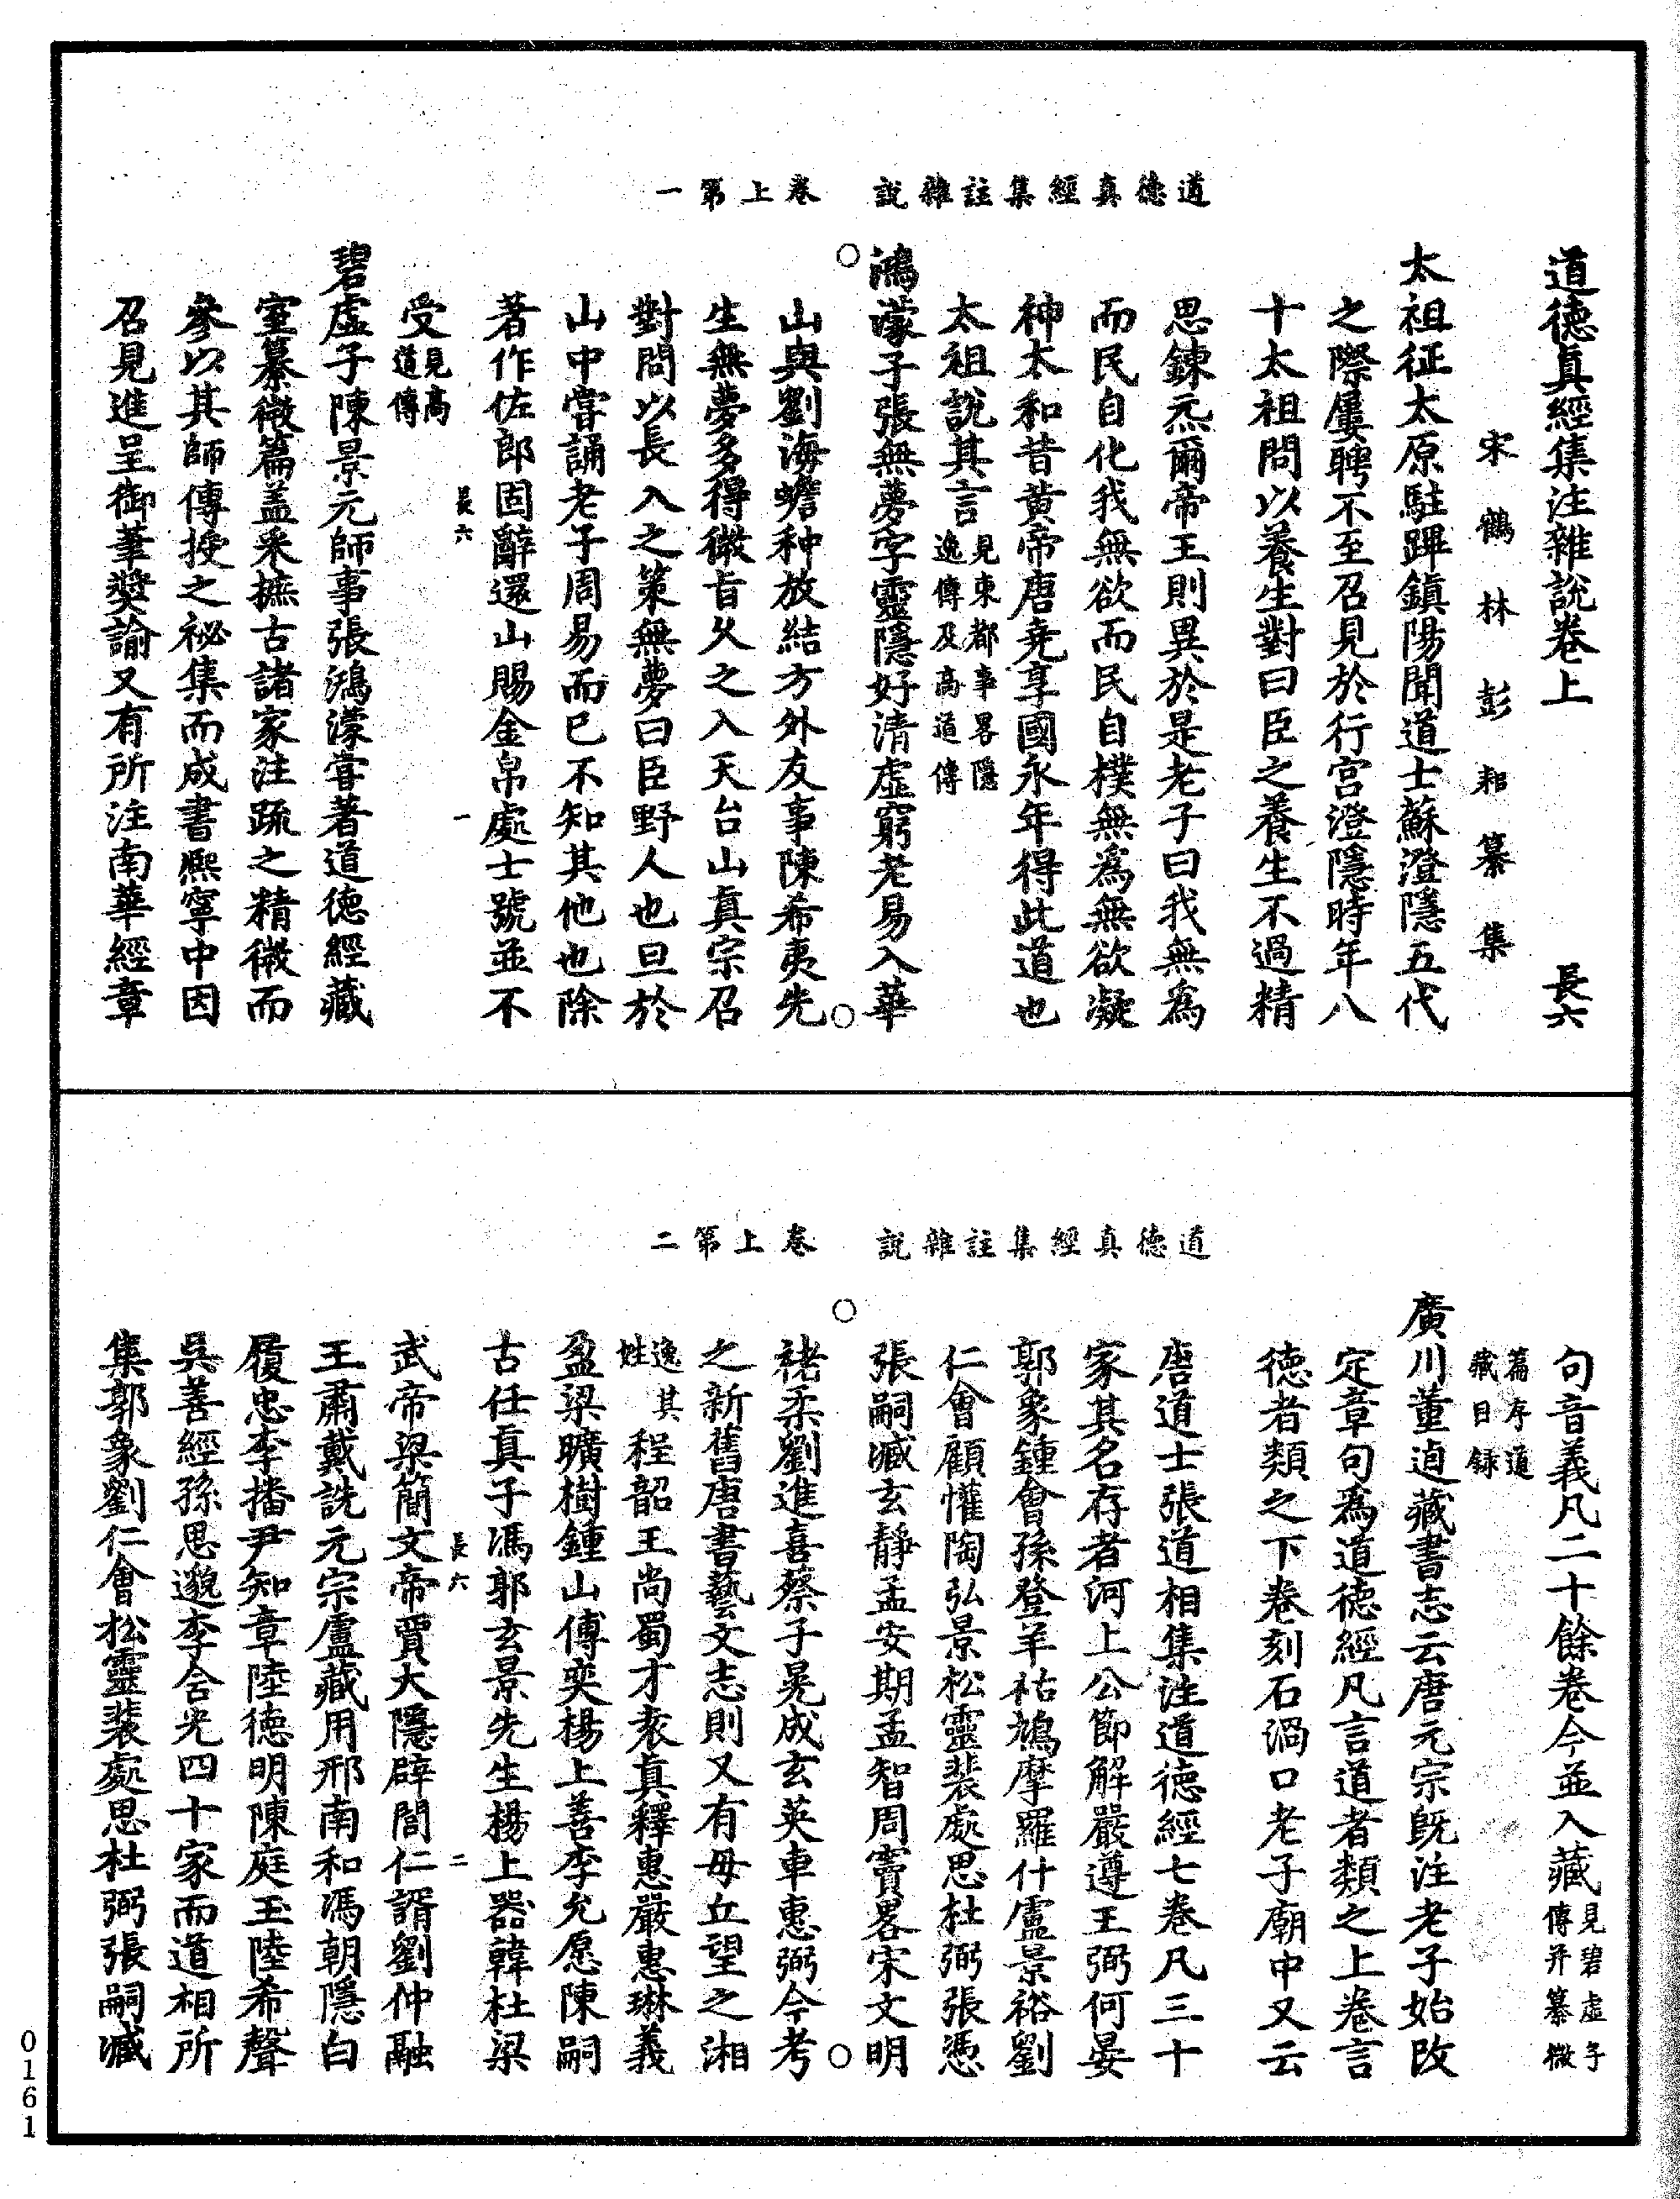 道德真經集註雜說　卷上第一
道德真經集注雜說卷上　長六
宋鶴林彭耜纂集
太祖征太原駐蹕鎮陽聞道士蘇澄隱五代
之際屢聘不至召見於行宮澄隱時年八
十太祖問以養生對曰臣之養生不過精
思鍊炁爾帝王則異於是老子曰我無為
而民自化我無欲而民自樸無為無欲凝
神太和昔黃帝唐堯享國永年得此道也
太祖說其言見東都事畧隱逸傳及高道傳
鴻濛子張無夢字靈隱好清虛窮老易入華
山與劉海蟾种放結方外友事陳希夷先
生無夢多得微旨久之入天台山真宗召
對問以長入之策無夢曰臣野人也旦於
山中嘗誦老子周易而已不知其他也除
著作佐郎固辭還山賜金帛處士號並不
長六　一
受見高道傳
碧虛子陳景元師事張鴻濛嘗著道德經藏
室纂微篇盖采摭古諸家注疏之精微而
參以其師傳授之祕集而成書熙寧中因
召見進呈御筆奬諭又有所注南華經章
道德真經集註雜說　卷上第二
句音義凡二十餘卷今並入藏見碧虛子傳并纂微
篇存道藏目録
廣川董逌藏書志云唐元宗既注老子始改
定章句為道德經凡言道者類之上卷言
德者類之下卷刻石渦口老子廟中又云
唐道士張道相集注道德經七卷凡三十
家其名存者河上公節解嚴遵王弼何晏
郭象鍾會孫登羊祜鳩摩羅什盧景裕劉
仁會顧懽陶弘景松靈裴處思杜弼張憑
張嗣臧玄靜孟安期孟智周竇畧宋文明
褚柔劉進喜蔡子晃成玄英車惠弼今考
之新舊唐書藝文志則又有毋丘望之湘
逸其姓程韶王尚蜀才袁真釋惠嚴惠琳義
盈梁曠樹鍾山傅奕楊上善李允愿陳嗣
古任真子馮郭玄景先生楊上器韓杜梁
長六　二
武帝梁簡文帝賈大隱辟閭仁諝劉仲融
王肅戴詵元宗盧藏用邢南和馮朝隱白
履忠李播尹知章陸德明陳庭玉陸希聲
吳善經孫思邈李含光四十家而道相所
集郭象劉仁會松靈裴處思杜弼張嗣臧
0161